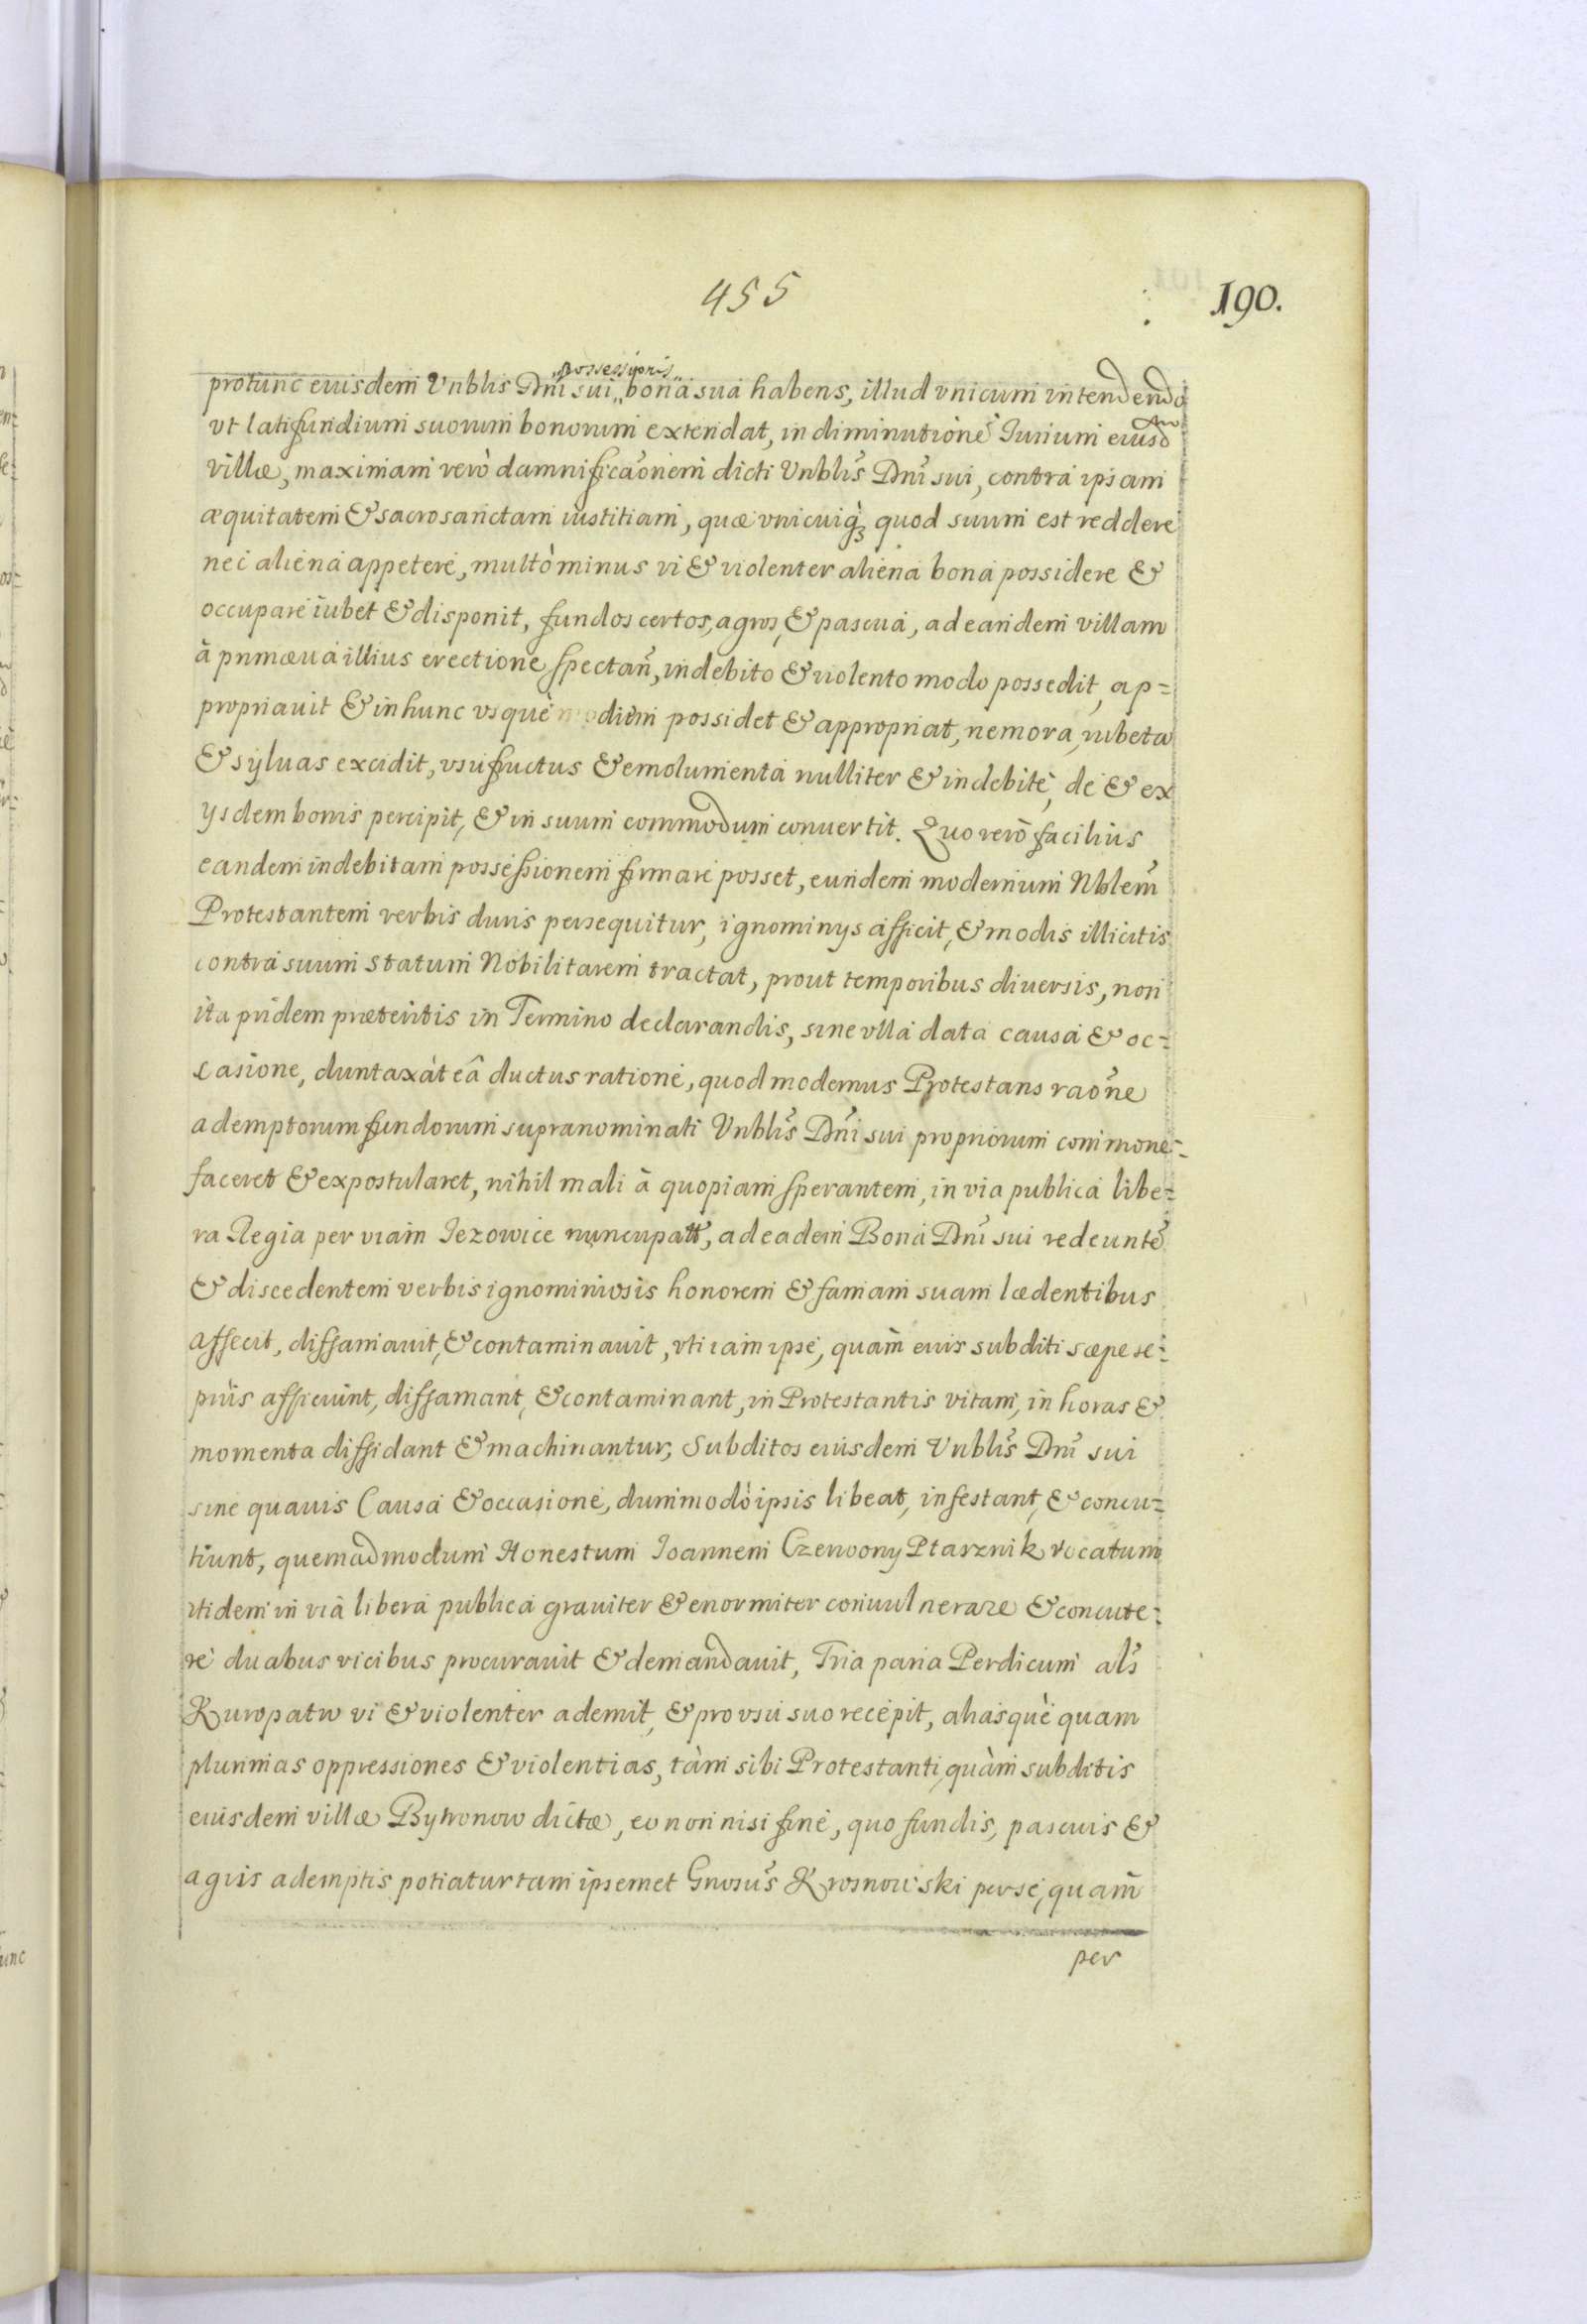 455
190.
possessionis
protunc eiusdem Vnblis Dni sui,, bona sua habens, illud vnicum intendendo
vt latifundium suorum bonorum extendat, in diminutione Iurium eiusd
villæ, maximam verò damnificaõnem dicti Vnblis Dni sui, contra ipsam
æquitatem & sacrosanctam iustitiam, quæ vnicuiq3 quod suum est reddere
nec aliena appetere, multò minus vi & violenter aliena bona possidere &
occupare iubet & disponit, fundos certos, agros, & pascua, ad eandem villam
à primæua illius erectione spectañ, indebito & violento modo possedit, ap=
propriauit & in hunc vsquè diem possidet & appropriat, nemora, rubeta
& syluas excidit, vsufructus & emolumenta nulliter & indebitè, de & ex
ysdem bonis percipit, & in suum commodum conuertit. Quo verò facilius
eandem indebitam possessionem firmare posset, eundem modernum Nblem
Protestantem verbis duris persequitur, ignominys afficit, & modis illicitis
contra suum statum Nobilitarem tractat, prout temporibus diuersis, non
ita pridem præteritis in Termino declarandis, sine vlla data causa & oc=
casione, duntaxàt eâ ductus ratione, quod modernus Protestans raõne
ademptorum fundorum supranominati Vnblis Dni sui propriorum commone=
faceret & expostularet, nihil mali à quopiam sperantem, in via publica libe=
ra Regia per viam Jezowice nuncupatt, ad eadem Bona Dni sui redeunte
& discedentem verbis ignominiosis honorem & famam suam lædentibus
affecit, diffamauit, & contaminauit, vti iam ipse, quàm eius subditi sæpe se=
piùs afficiunt, diffamant, & contaminant, in Protestantis vitam, in horas &
momenta diffidant & machinantur, Subditos eiusdem Vnblis Dni sui
sine quauis Causa & occasione, dummodò ipsis libeat, infestant, & concu=
tiunt, quemadmodum Honestum Joannem Czerwony Ptasznik vocatum
itidem in via libera publica grauiter & enormiter conuulnerare & concute=
re duabus vicibus procurauit & demandauit, Tria paria Perdicum als
Kuropatw vi & violenter ademit, & pro vsu suo recepit, aliasquè quam
plurimas oppressiones & violentias, tàm sibi Protestanti, quàm subditis
eiusdem villæ Bytronow dictæ, eo non nisi fine, quo fundis, pascuis &
agris ademptis potiatur tam ipsemet Gnosus Krosnowski per se, quàm
per